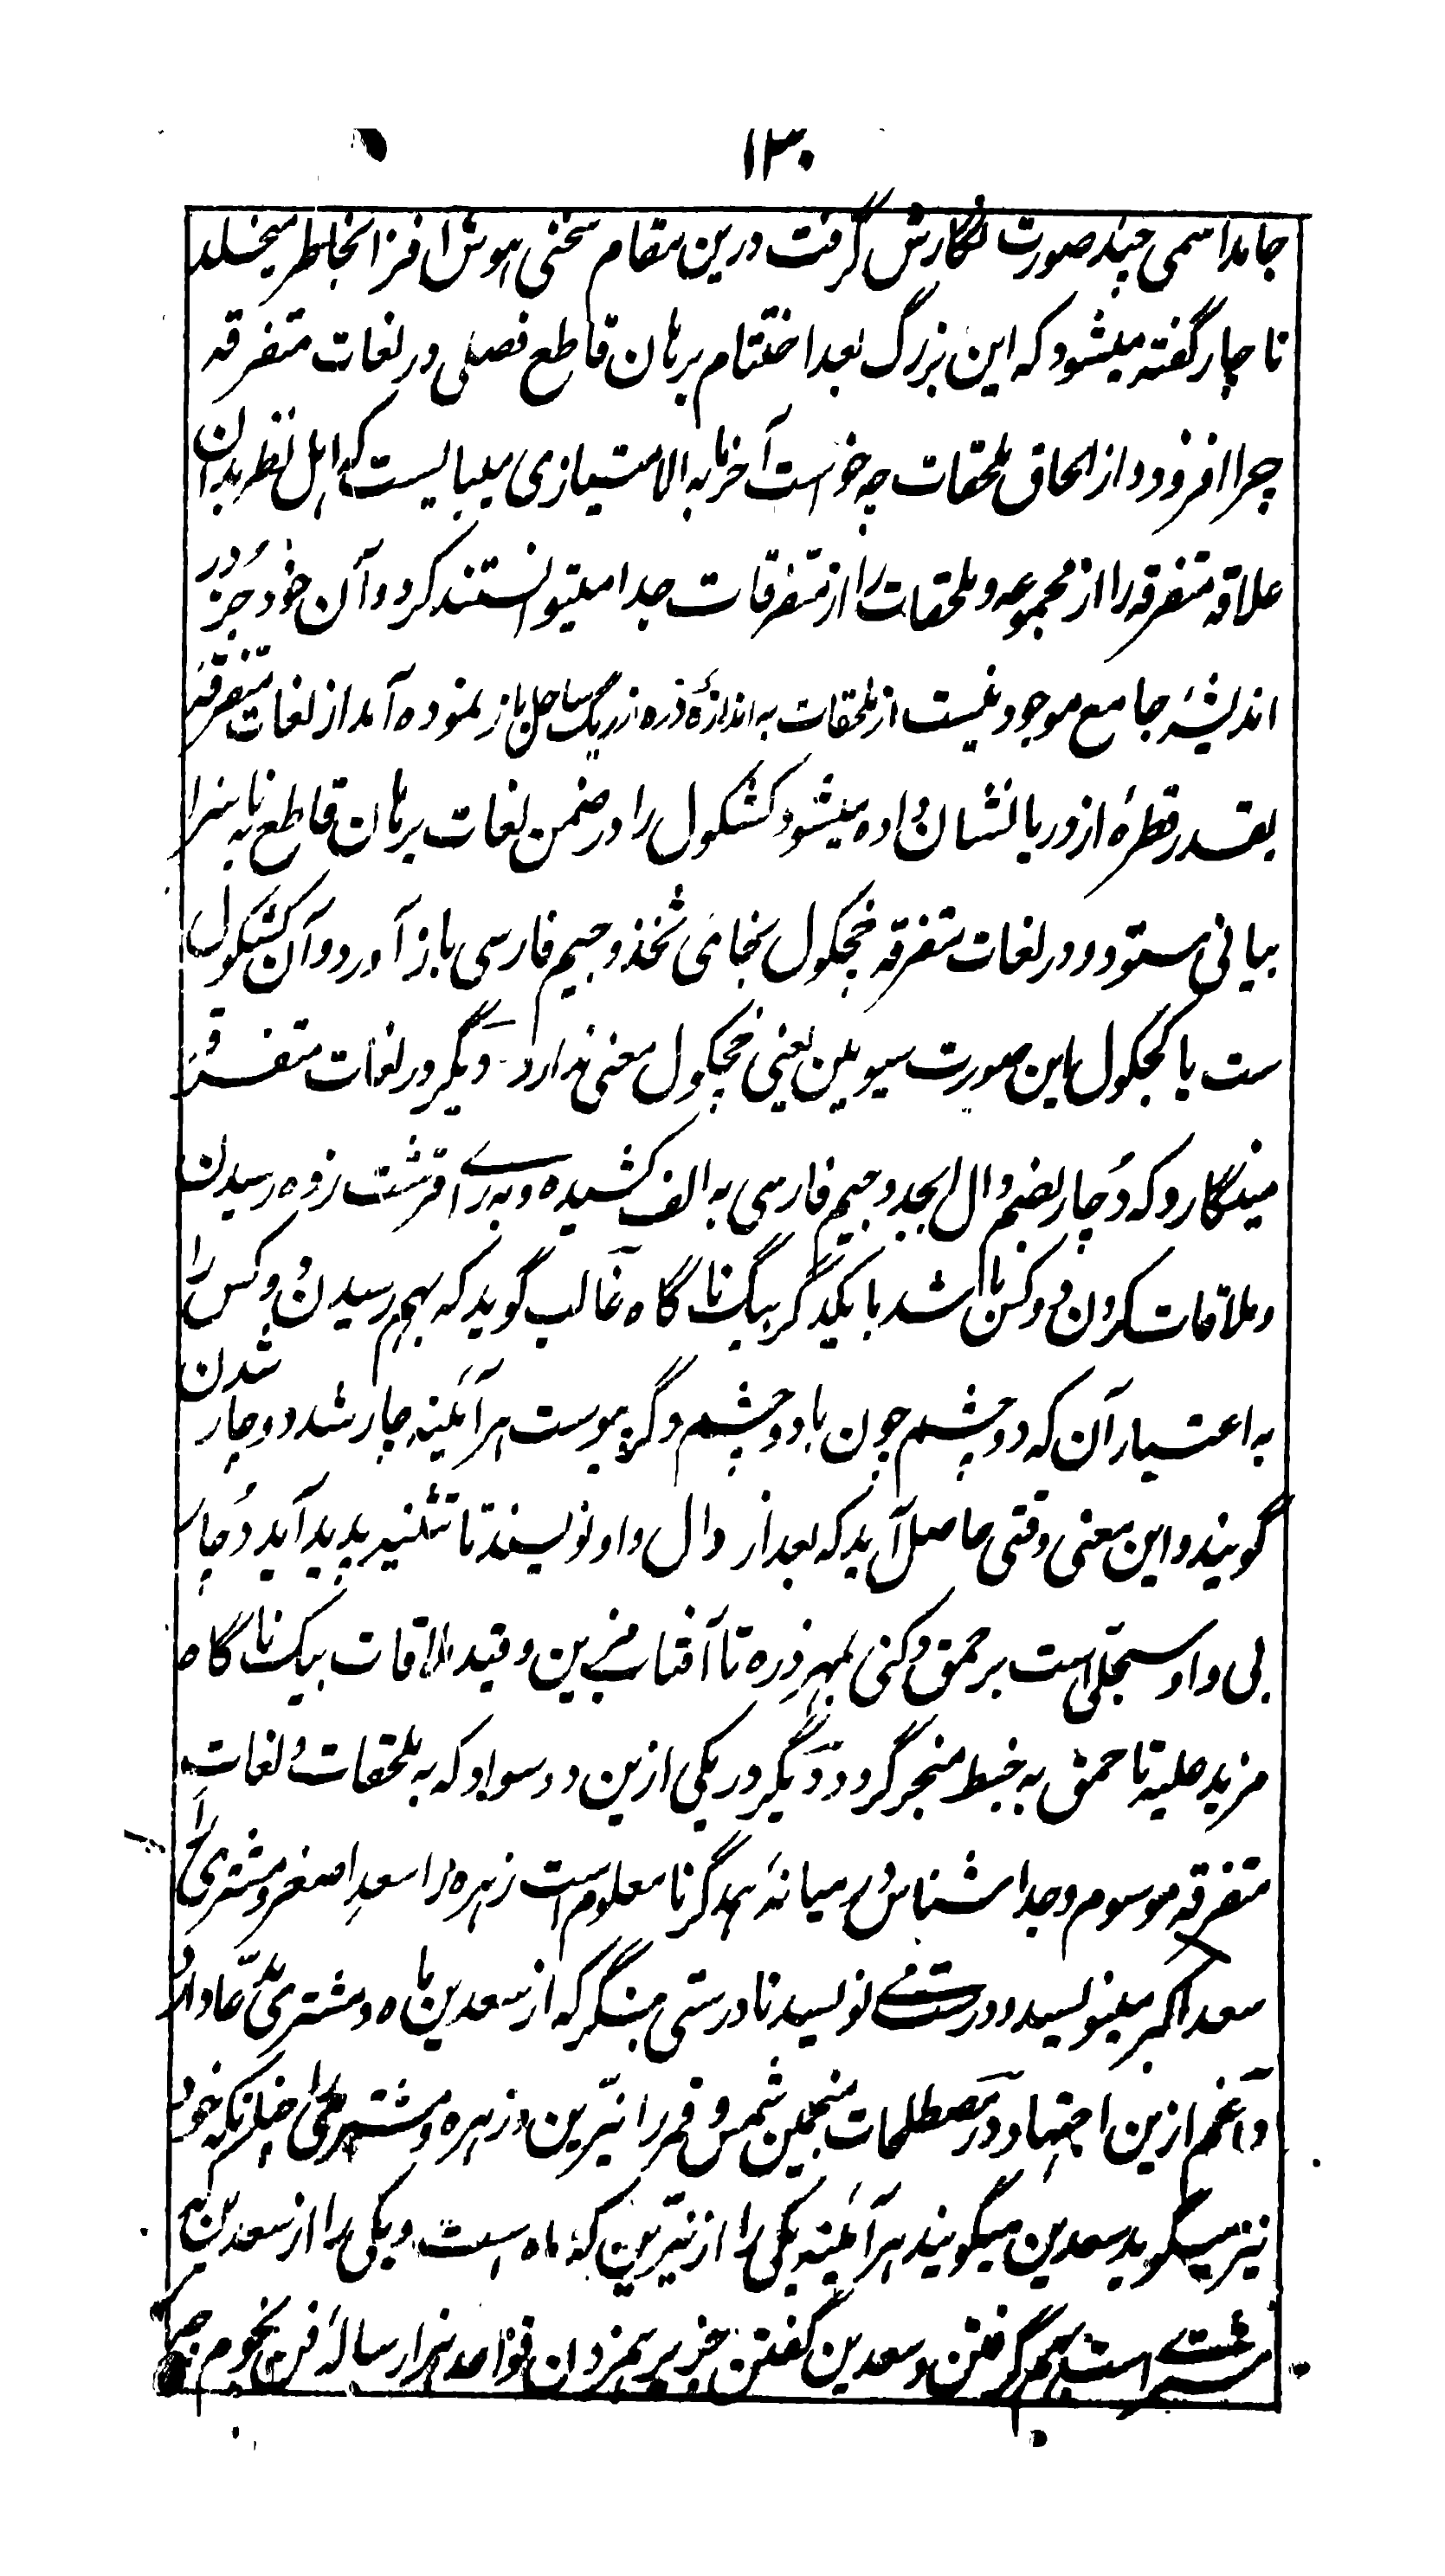 ۱۳۰
جامد اسمی چند صورت نگارش گرفت درین مقام سخنی هوش افزا بخاطر میخلد
ناچار گفته میشود که این بزرگ بعد اختتام برهان قاطع فصلی در لغات متفرقه
چرا افزود و از الحاق ملحقات چه خواست آخر مابه الامتیازی میبایست که اهل نظر بدان
علاقه متفرقه را از مجموعه و ملحقات را از متفرقات جدا میتوانستند کرد و آن خود جز در
اندیشهٔ جامع موجود نیست از ملحقات به اندازهٔ ذره از ریگ ساحل باز نموده آمد از لغات متفرقه
بقدر قطرهٔ از دریا نشان داده میشود کشکول را در ضمن لغات برهان قاطع به ناسزا
بیانی ستود و در لغات متفرقه خچکول بخای ثخذ و جیم فارسی باز آورد و آن کشکول
ست یا کجکول باین صورت سیومین یعنی خچکول معنی ندارد دیگر در لغات متفرقه
مینگارد که دُچار بضم دال ابجد و جیم فارسی به الف کشیده و به رای قرشت زده رسیدن
و ملاقات کردن دو کس باشد با یکدگر بیک ناگاه غالب گوید که بهم رسیدن دو کس را
به اعتبار آن که دو چشم چون با دو چشم دگر پیوست هرآئینه چار شد دوچار شدن
گویند و این معنی وقتی حاصل آید که بعد از دال واو نویسند تا تثنیه پدید آید دُچار
بی واو سجلی است بر حمق دکنی بمهر ذره تا آفتاب مزین و قید ملاقات بیک ناگاه
مزید علیه تا حمق به خبط منجر گردد دیگر در یکی ازین دو سواد که به ملحقات و لغات
متفرقه موسوم و جدا شناس در میانهٔ همدگر نامعلوم است زهره را سعدِ اصغر و مشتری را
سعد اکبر مینویسد و درست مینویسد نادرستی بنگر که از سعدین ماه و مشتری مدّعا دارد
داغم ازین اجتهاد در مصطلحات منجمین شمس و قمر را نیّرین و زهره و مشتری را چنانکه خود
نیز میگوید سعدین میگویند هرآئینه یکی را از نیّرین که ماه است و یکی را از سعدین که
مشتری است بهم گرفتن و سعدین گفتن جز برهمزدن قواعد هزار رسالهٔ فن نجوم